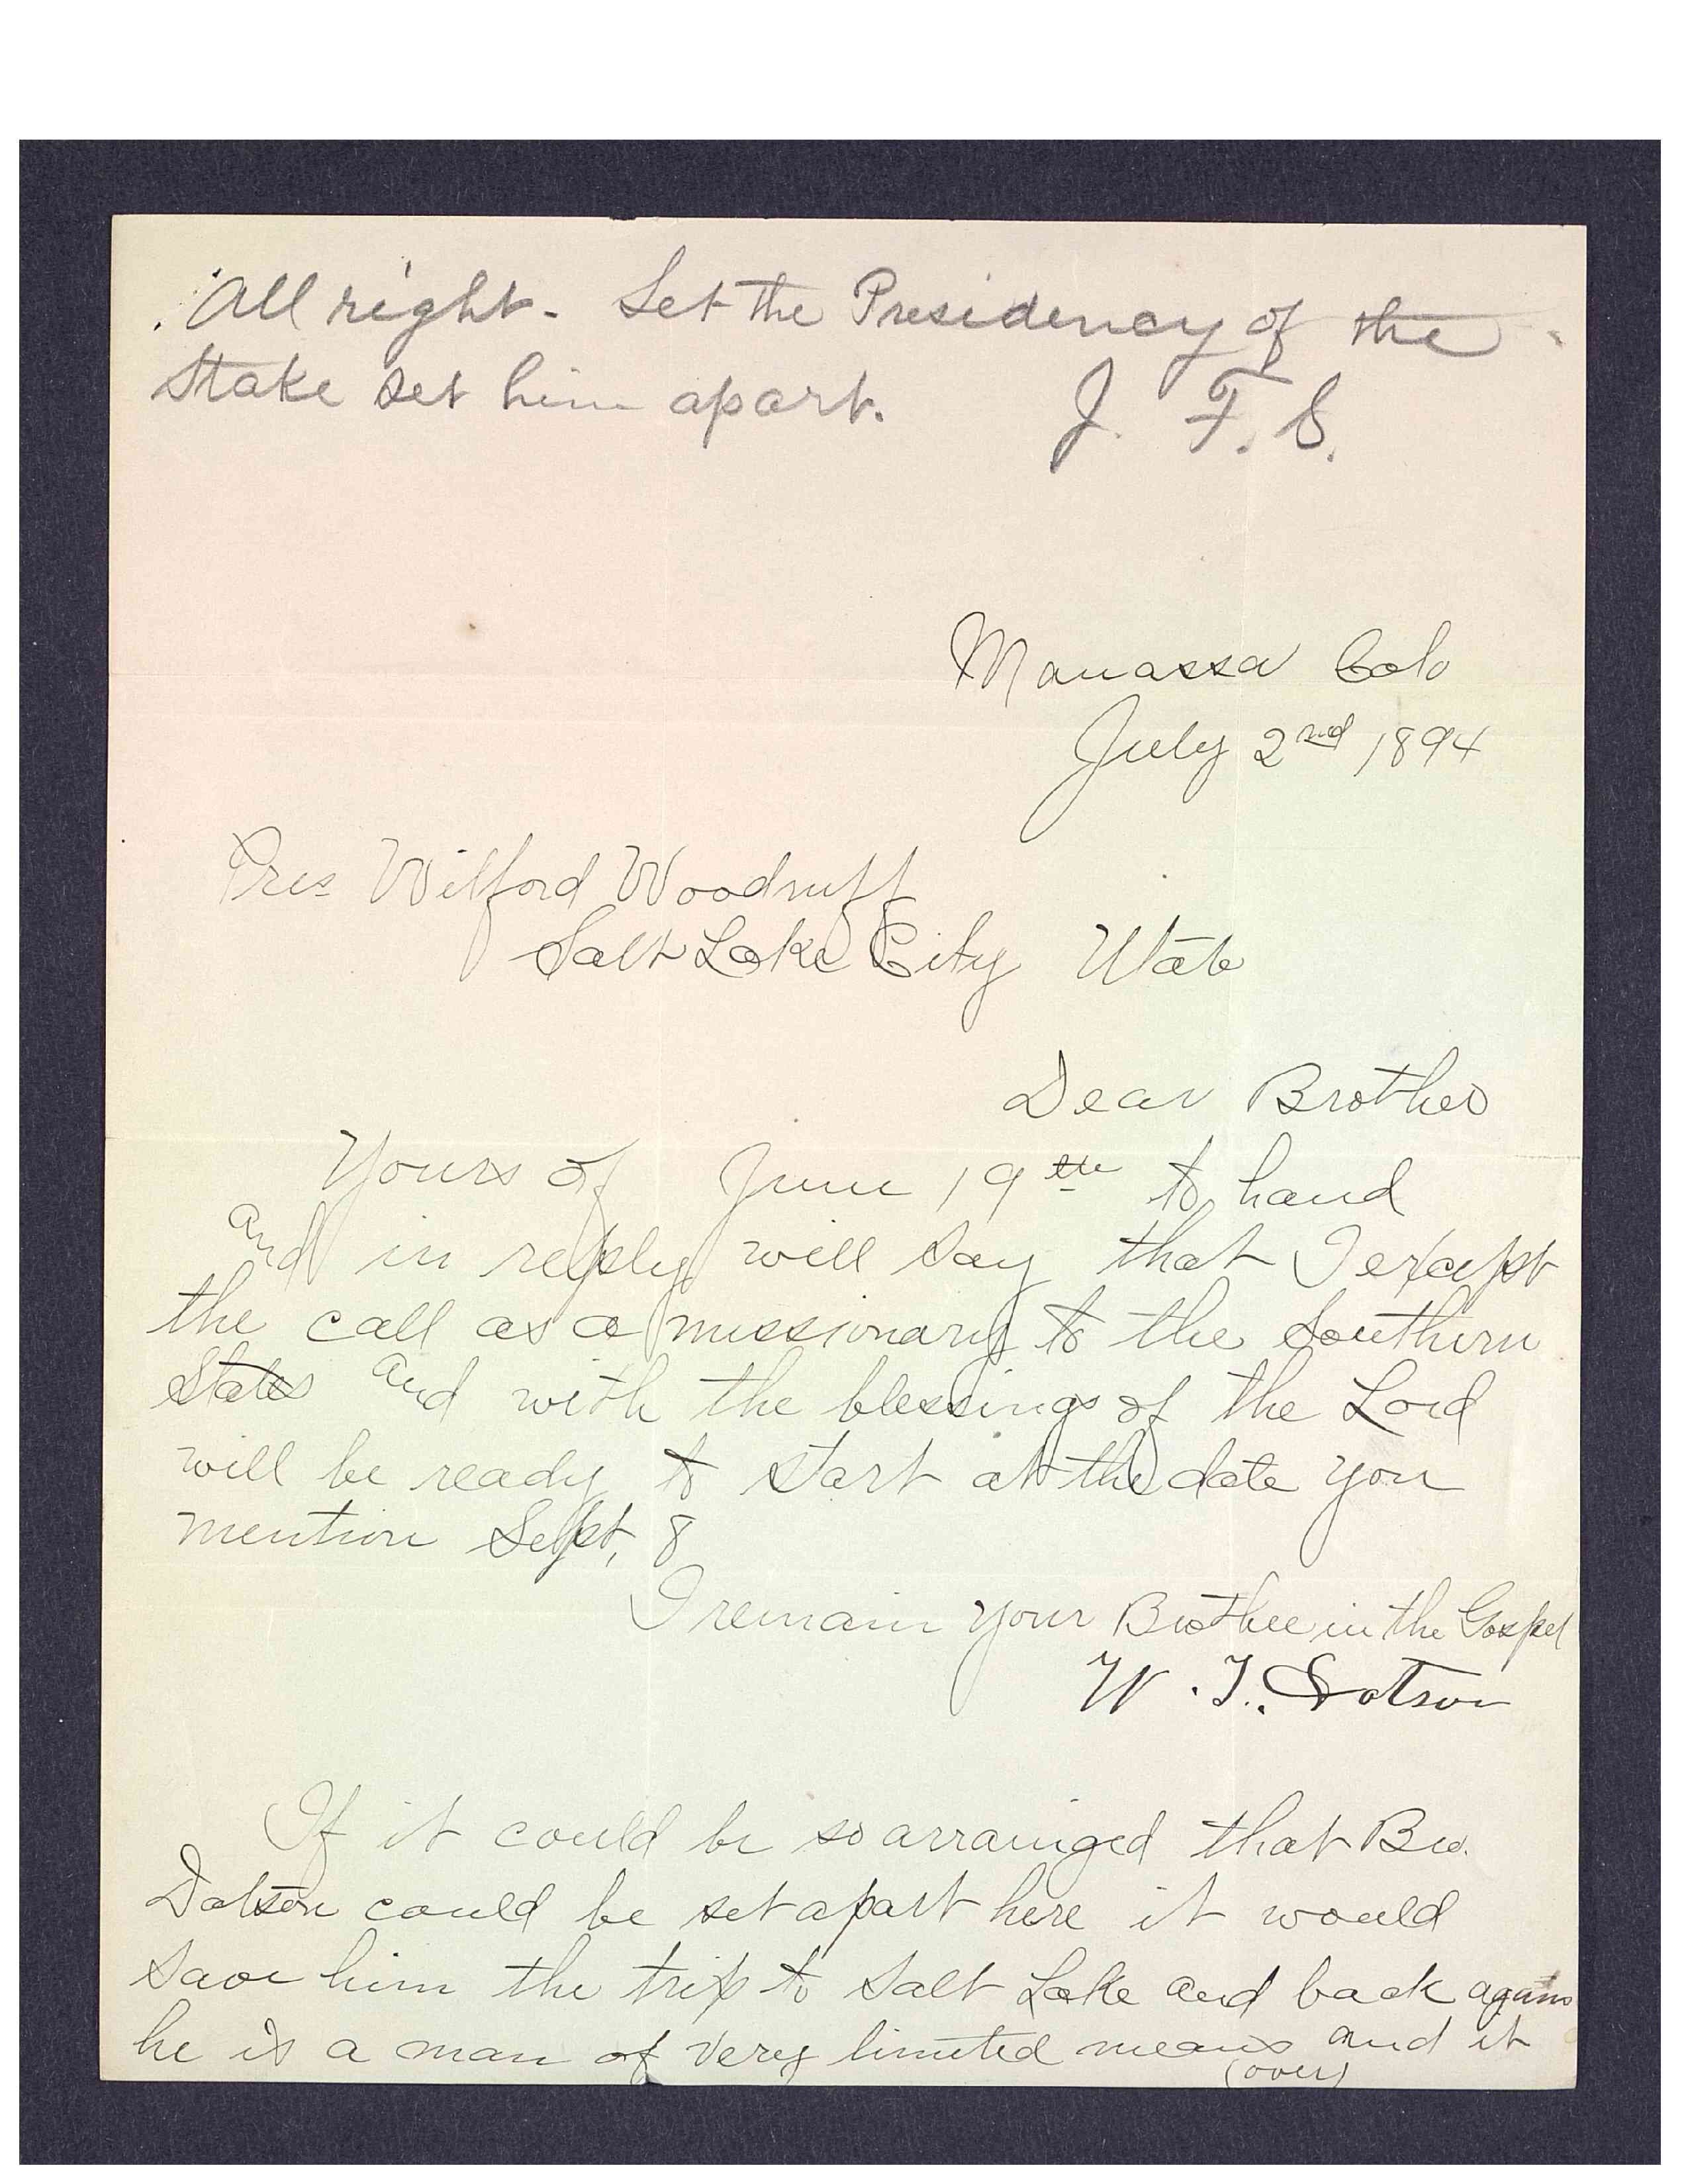 All right. Let the Presidency of the
Stake set him apart. J. F. S.
Manassa Colo
July 2nd 1894
Pres Wilford Woodruff
Salt Lake City Utah
Dear Brother
Yours of June 19th to hand
and in reply will say that I except
the call as a missionary to the Southern
States and with the blessings of the Lord
will be ready to start at the date you
mention Sept, 8
I remain your Brother in the Gospel
W. T. Dotson
If it could be so arrainged that Bro.
Dotson could be set apart here it would
save him the trip to Salt Lake and back again
he is a man of very limited means and it
(over)